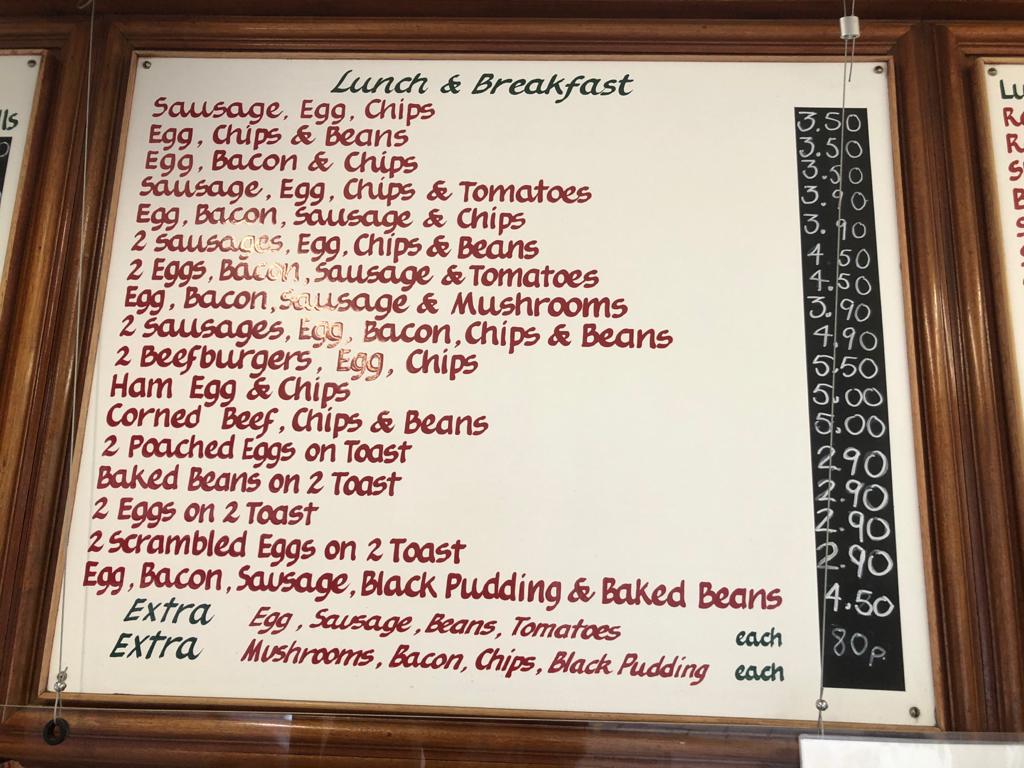 lls
Lunch & Breakfast
Sausage, Egg, Chips 3.50
Egg, Chips & Beans 3.50
Egg, Bacon & Chips 3.50
Sausage, Egg, Chips & Tomatoes 3.90
Egg, Bacon, Sausage & Chips 3.90
2 Sausages, Egg, Chips & Beans 4.50
2 Eggs, Bacon, Sausage & Tomatoes 4.50
Egg, Bacon, Sausage & Mushrooms 3.90
2 Sausages, Egg, Bacon, Chips & Beans 4.90
2 Beefburgers, Egg, Chips 5.50
Ham Egg & Chips 5.00
Corned Beef, Chips & Beans 5.00
2 Poached Eggs on Toast 2.90
Baked Beans on 2 Toast 2.90
2 Eggs on 2 Toast 2.90
2 Scrambled Eggs on 2 Toast 2.90
Egg, Bacon, Sausage, Black Pudding & Baked Beans 4.50
Extra Egg, Sausage, Beans, Tomatoes each 80p
Extra Mushrooms, Bacon, Chips, Black Pudding each
Lu